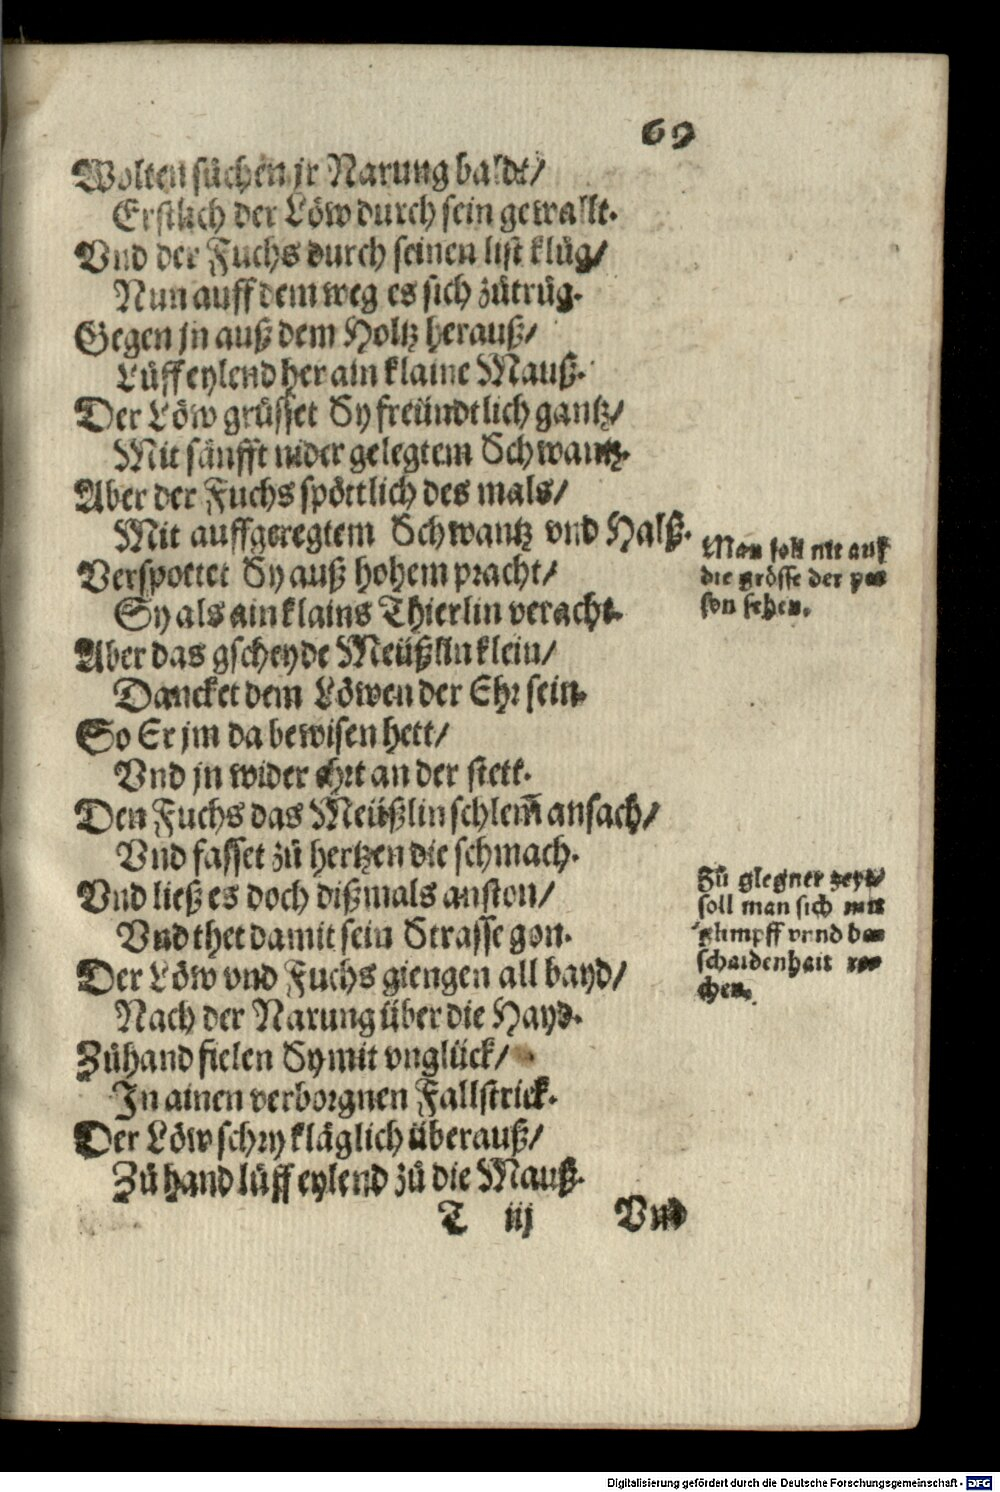 69
Wolten sůchen jr Narung baldt/
Erstlich der Löw durch sein gewallt.
Vnd der Fuchs durch seinen list klůg/
Nun auff dem weg es sich zůtrůg.
Gegen jn auß dem Holtz herauß/
Lüff eylend her ain klaine Mauß.
Der Löw grüsset Sy freündtlich gantz/
Mit sänfft nider gelegtem Schwantz.
Aber der Fuchs spöttlich des mals/
Mit auffgeregtem Schwantz vnd Halß.
Verspottet Sy auß hohem pracht/
Sy als ain klains Thierlin veracht.
Aber das gscheyde Meüßlin klein/
Dancket dem Löwen der Ehr sein.
So Er jm da bewisen hett/
Vnd jn wider ehrt an der stett.
Den Fuchs das Meüßlin schlem̃ ansach/
Vnd fasset zů hertzen die schmach.
Vnd ließ es doch dißmals anston/
Vnd thet damit sein Strasse gon.
Der Löw vnd Fuchs giengen all bayd/
Nach der Narung über die Hayd.
Zůhand fielen Sy mit vnglück/
In ainen verborgnen Fallstrick.
Der Löw schry kläglich überauß/
Zů hand lüff eylend zů die Mauß.
T iij Vnd
Man soll nit auf
die grösse der per
son sehen.
Zů glegner zeyt/
soll man sich mit
glimpff vnnd be
schaidenhait re
chen.
Digitalisierung gefördert durch die Deutsche Forschungsgemeinschaft - DFG